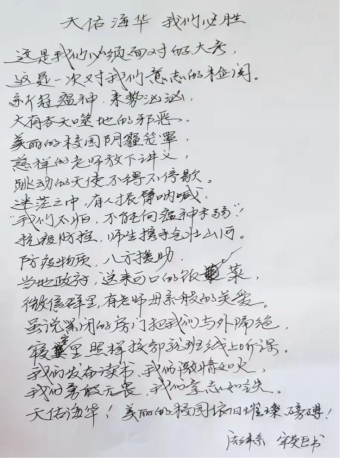 天佑海华 我们必胜
这是我们必须面对的大考,
这是一次对我们意志的检阅。
新冠瘟神,来势汹汹,
大有吞天噬地的邪恶。
美丽的校园阴霾笼罩,
慈祥的老师放下讲义,
跳动的天使不得不停歇。
迷茫之中,有人振臂呐喊,
"我们不怕,不能向瘟神示弱"!
抗疫防控,师生携手气壮山河。
防疫物资,八方援助,
当地政府,送来可口的饭菜,
微信群里,有老师母亲般的关爱。
虽说紧闭的房门把我们与外隔绝,
寝室里照样按部就班线上听课。
我们发奋读书,我们激情如火,
我们勇敢无畏,我们意志如铁。
天佑海华!美丽的校园依旧璀璨,磅礴!